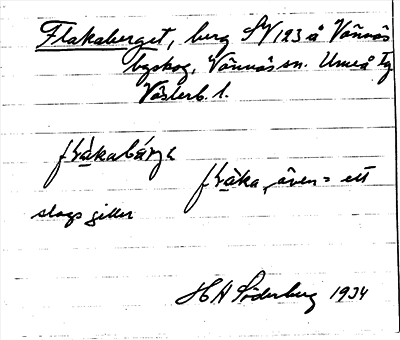 Flakaberget, berg SV 123 å Vännäs
byskog, Vännäs sn. Umeå tg
Västerb. l.
flàkabárjə
flàka, även = ett
slags giller
H A Söderberg 1934